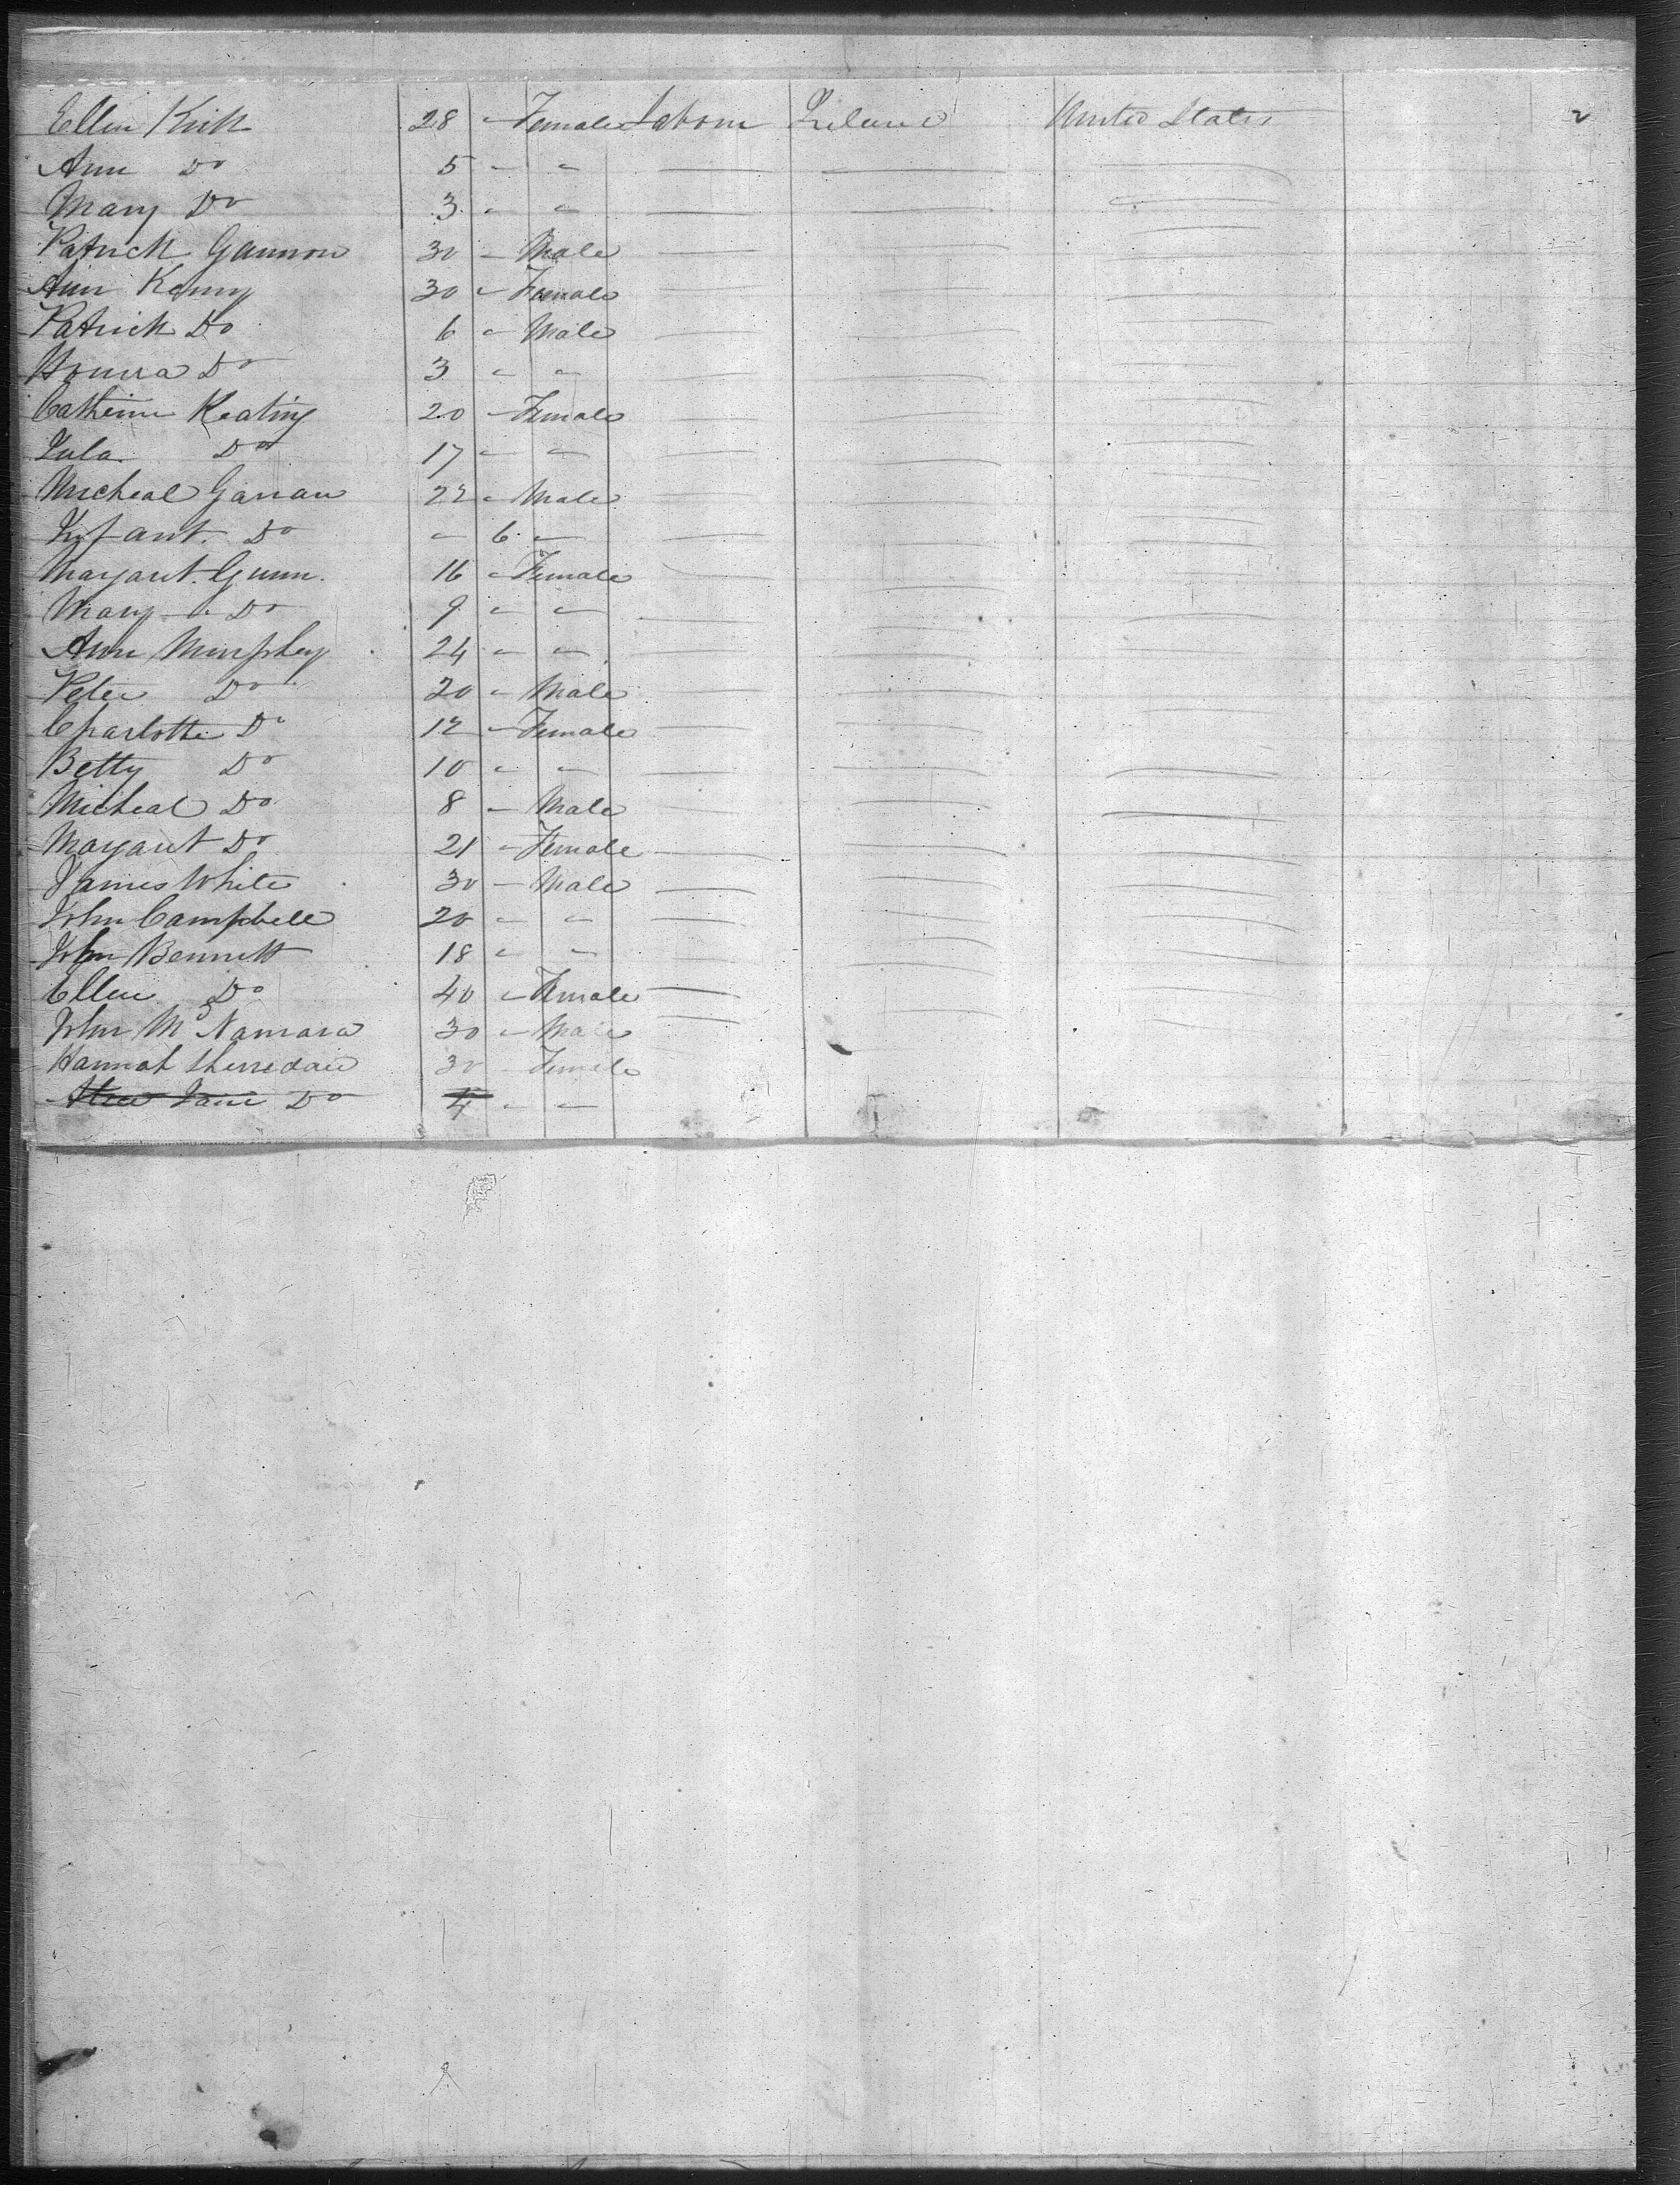 Ellen Kirk 28 " Female Labour Ireland United States 2
Ann Do 5 " "
Mary Do 3 " "
Patrick Gannon 30 " Male
Ann Kenny 30 " Female
Patrick Do 6 " Male
Honora Do 3 " "
Catherine Keating 20 " Female
Do 17 " "
Micheal 22 " Male
Infant. Do " 6 "
Margaret Gunn. 16 " Female
Mary Do 9 " "
Ann Murphey 24 " "
Peter Do 20 " Male
Charlotte Do 12 " Female
Betty Do 10 " "
Micheal Do 8 " Male
Margaret Do 21 " Female
James White 30 " Male
John Campbell 20 " "
John Bennett 18 " "
Ellen Do 40 " Female
John McNamara 30 " Male
Hannah Sherridan 30 Female
Jane Do 4 " "